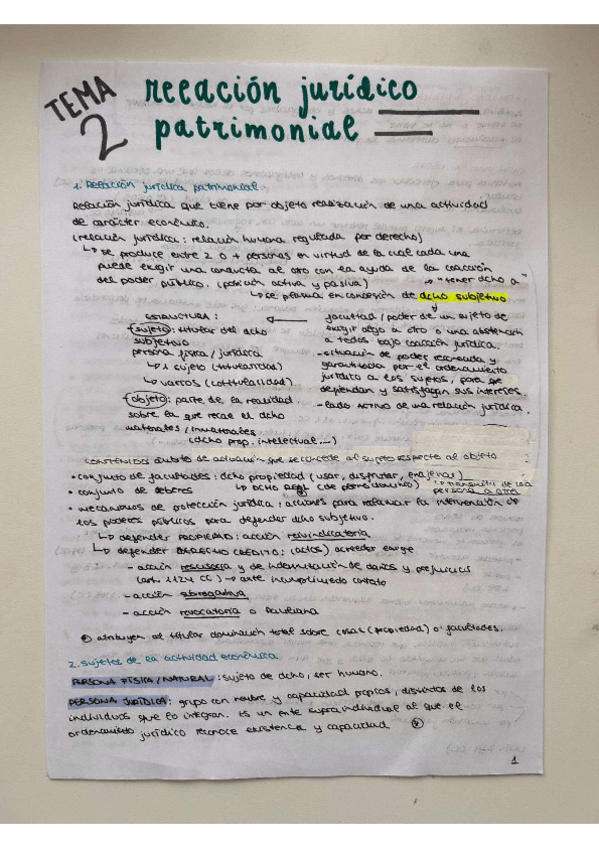 TEMA 2
relación jurídico
patrimonial
1. Relación jurídica patrimonial.
Relación jurídica que tiene por objeto realización de una actividad
de carácter económico.
(relación jurídica: relación humana regulada por derecho)
↳ se produce entre 2 o + personas en virtud de la cual cada una
puede exigir una conducta al otro con la ayuda de la coacción
del poder público. (posición activa y pasiva) → "tener dcho a"
↳ se plasma en concesión de dcho subjetivo
ESTRUCTURA:
(sujeto): titular del dcho
subjetivo
persona física / jurídica
↳ 1 sujeto (titularidad)
↳ varios (cotitularidad)
(objeto): parte de la realidad
sobre la que recae el dcho
materiales / inmateriales
(dcho prop. intelectual...)
facultad / poder de un sujeto de
exigir algo a otro o una abstención
a todos bajo coacción jurídica.
- situación de poder reconocida y
garantizada por el ordenamiento
jurídico a los sujetos, para que
defiendan y satisfagan sus intereses.
- lado activo de una relación jurídica.
CONTENIDO: ámbito de actuación que se concede al sujeto respecto al objeto
• conjunto de facultades: dcho propiedad (usar, disfrutar, enajenar)
• conjunto de deberes ↳ DCHO REAL (de dominio) ↳ transmitir de una
persona a otra
• mecanismos de protección jurídica: acciones para reclamar la intervención de
los poderes públicos para defender dcho subjetivo.
↳ defender PROPIEDAD: acción reivindicatoria
↳ defender DERECHO CRÉDITO: acreedor exige
- acción rescisoria y de indemnización de daños y prejuicios
(art. 1124 CC) → ante incumplimiento contrato
- acción
- acción revocatoria o Pauliana
atribuyen al titular dominación total sobre cosas (propiedad) o facultades.
2. Sujetos de la actividad económica.
PERSONA FÍSICA / NATURAL: sujeto de dcho, ser humano.
PERSONA JURÍDICA: grupo con nombre y capacidad propios, distintos de los
individuos que lo integran. Es un ente supraindividual al que el
ordenamiento jurídico reconoce existencia y capacidad
1